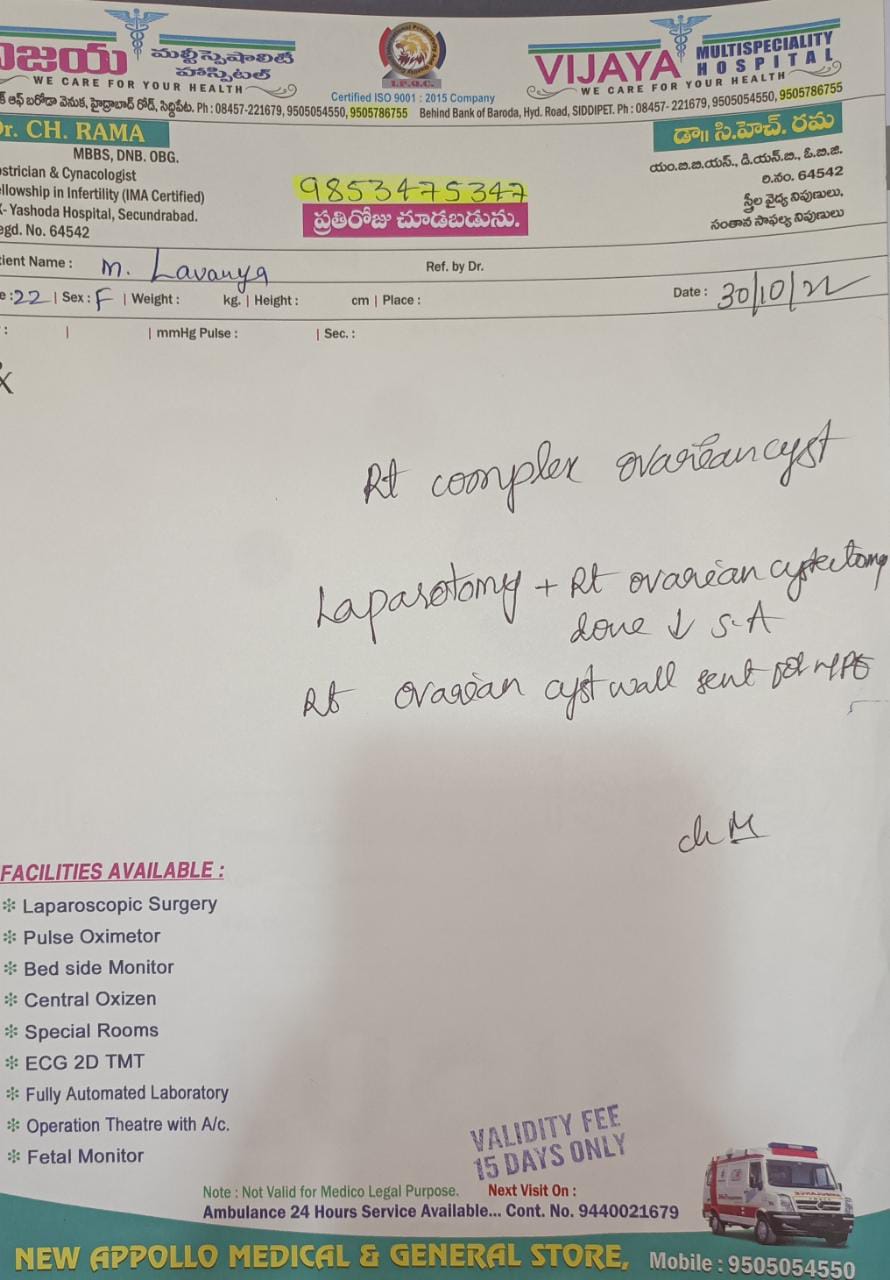 విజయ మల్టీస్పెషాలిటీ హాస్పిటల్
WE CARE FOR YOUR HEALTH
I.P.Q.C.
Certified ISO 9001 : 2015 Company
VIJAYA MULTISPECIALITY HOSPITAL
WE CARE FOR YOUR HEALTH
ఆఫ్ బరోడా వెనుక, హైద్రాబాద్ రోడ్, సిద్దిపేట. Ph : 08457-221679, 9505054550, 9505786755 Behind Bank of Baroda, Hyd. Road, SIDDIPET. Ph : 08457- 221679, 9505054550, 9505786755
Dr. CH. RAMA
MBBS, DNB. OBG.
stetrician & Cynacologist
ellowship in Infertility (IMA Certified)
- Yashoda Hospital, Secundrabad.
egd. No. 64542
9853475347
ప్రతిరోజు చూడబడును.
డా॥ సి.హెచ్. రమ
యం.బి.బి.యస్., డి.యన్.బి., ఓ.బి.జి.
రి.నం. 64542
స్త్రీల వైద్య నిపుణులు,
సంతాన సాఫల్య నిపుణులు
tient Name : M. Lavanya Ref. by Dr.
e : 22 | Sex : F | Weight : kg. | Height : cm | Place : Date : 30/10/22
: | | mmHg Pulse : | Sec. :
Rt complex ovarian cyst
Laparotomy + Rt ovarian cystectomy
done ↓ S.A
Rt ovarian cyst wall sent for HPE
FACILITIES AVAILABLE :
❇ Laparoscopic Surgery
❇ Pulse Oximetor
❇ Bed side Monitor
❇ Central Oxizen
❇ Special Rooms
❇ ECG 2D TMT
❇ Fully Automated Laboratory
❇ Operation Theatre with A/c.
❇ Fetal Monitor
VALIDITY FEE
15 DAYS ONLY
Note : Not Valid for Medico Legal Purpose. Next Visit On :
Ambulance 24 Hours Service Available... Cont. No. 9440021679
NEW APPOLLO MEDICAL & GENERAL STORE, Mobile : 9505054550